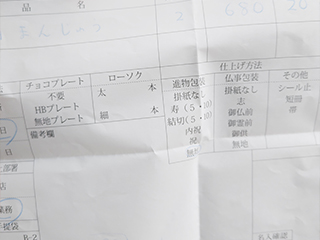 品 名
まんじゅう 2 680 20
仕上げ方法
チョコプレート ローソク 進物包装 仏事包装 その他
不要 太 本 掛紙なし 掛紙なし シール止
HBプレート 寿(5・10) 志 短冊
無地プレート 細 本 結切(5・10) 御仏前 帯
備考欄 内祝 御霊前
御供
無地 無地
日
部署
店
業務
提袋
B-2
名入確認